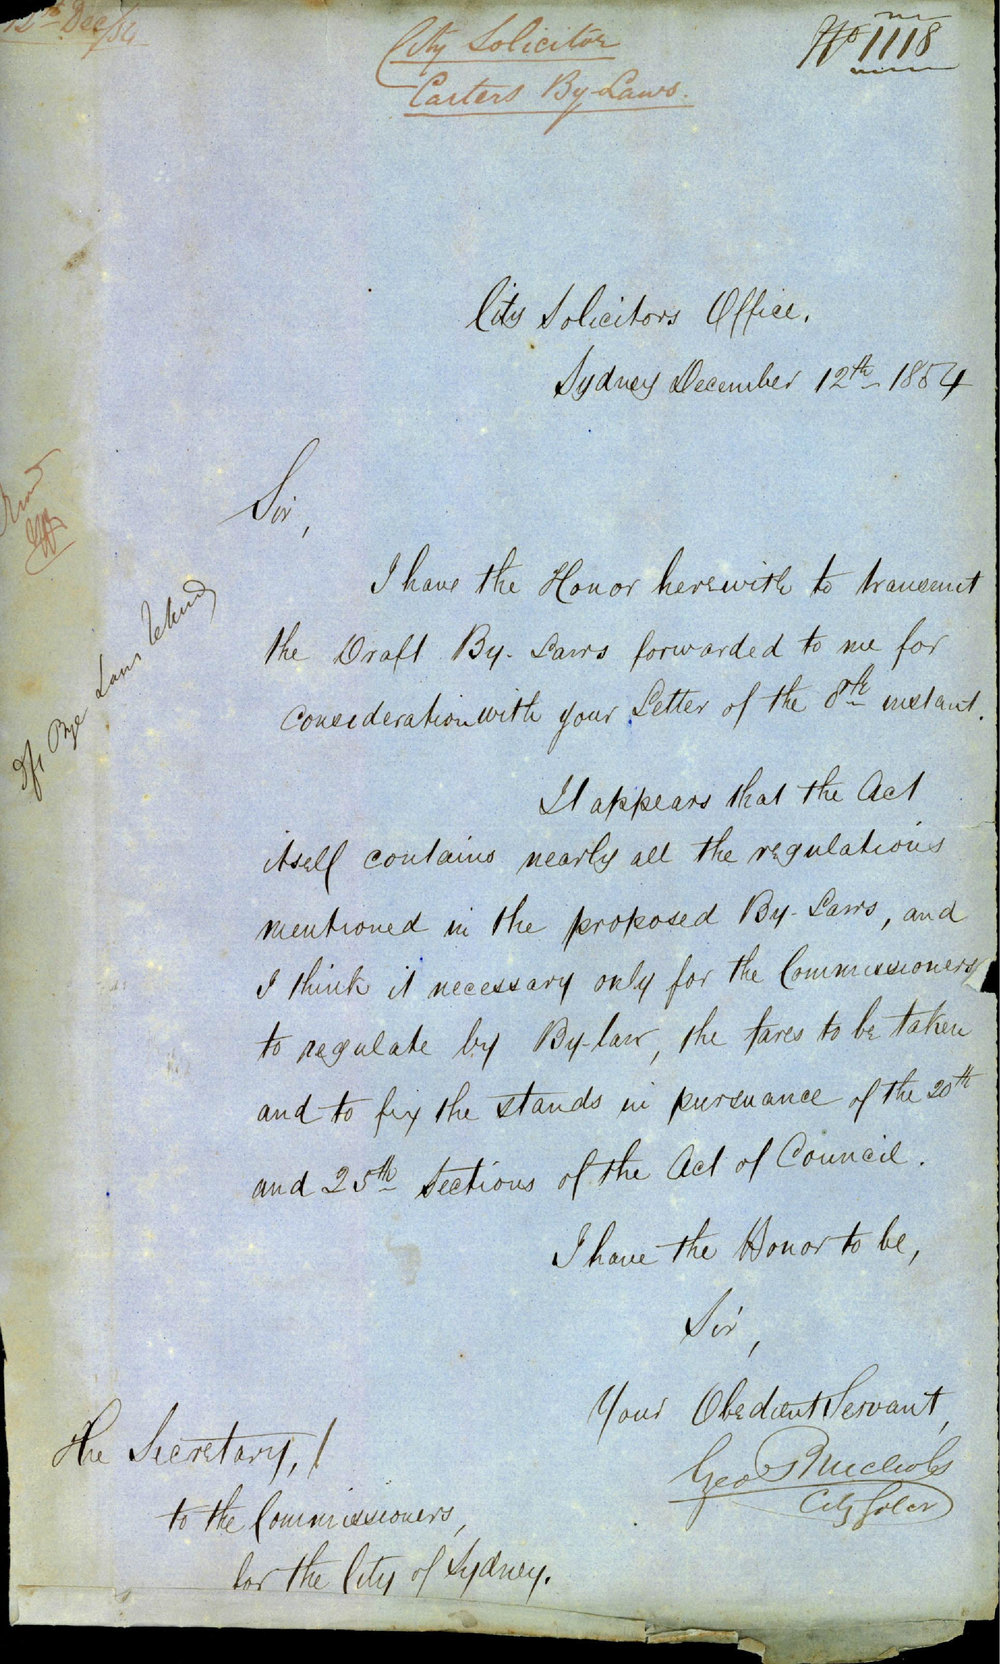 12th Dec/54
City Solicitor
Carters By-Laws.
No 1118
City Solicitors Office.
Sydney December 12th 1854
Sir,
I have the Honor herewith to transmit
the Draft By-Laws forwarded to me for
consideration with your Letter of the 8th instant.
It appears that the Act
itself contains nearly all the regulations
mentioned in the proposed By-Laws, and
I think it necessary only for the Commissioners
to regulate by By-law, the fares to be taken
and to fix the stands in pursuance of the 20th
and 25th Sections of the Act of Council.
I have the Honor to be,
Sir,
Your Obedient Servant,
Geo R Nichols
City Solr
The Secretary,
to the Commissioners,
for the City of Sydney.
Dft Bye Laws